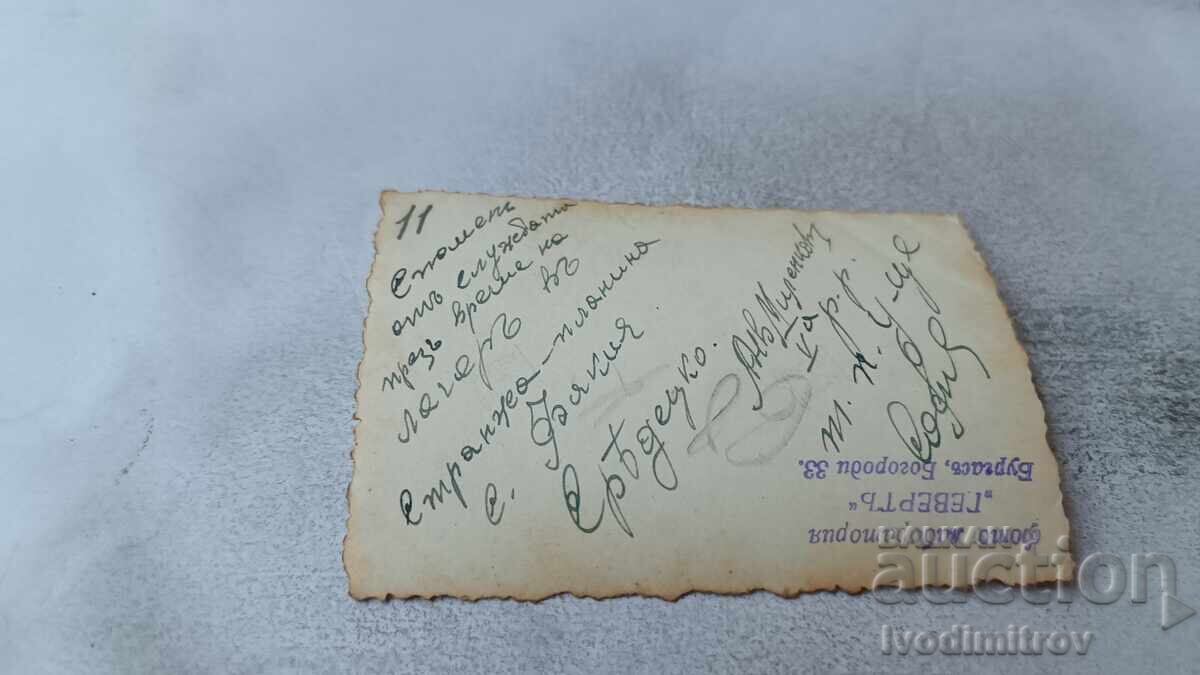 11
Споменъ
отъ службата
презъ време на
лагеръ въ
Странжа-планина
с. Факия
Срѣдецко.
Миленковъ
Vа р. р.
т. п. у-ще
София
фото лаборатория
„ГЕВЕРТЪ“
Бургасъ, Богороди 33.
BALKAN
auction
Ivodimitrov